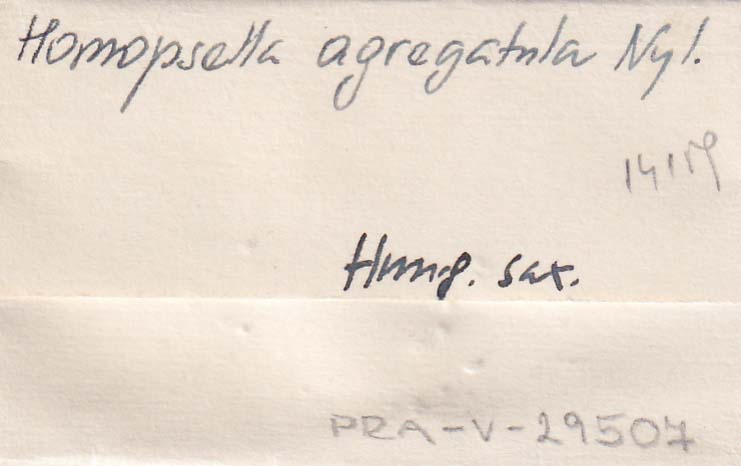 Homopsella agregatula Nyl.
14159
Hung. sax.
PRA-V-29507